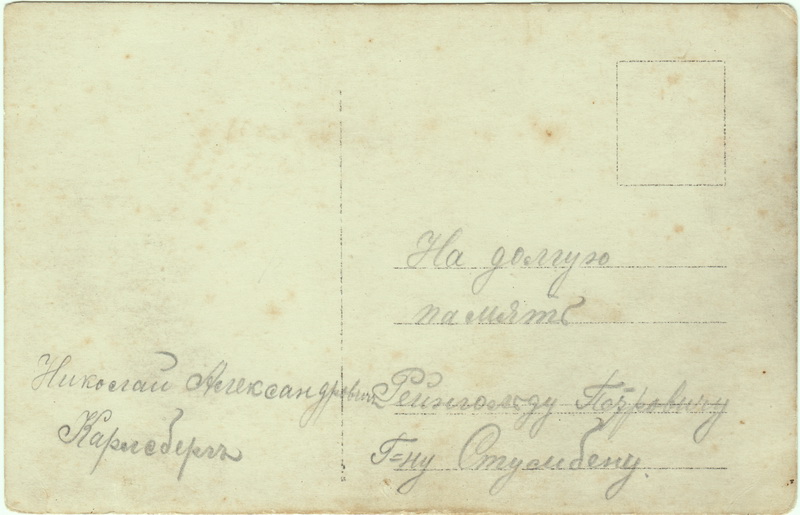 Николай Александровичъ
Карлсбергъ
На долгую
память
Рейнгольду Петровичу
Г=ну Стумбену.